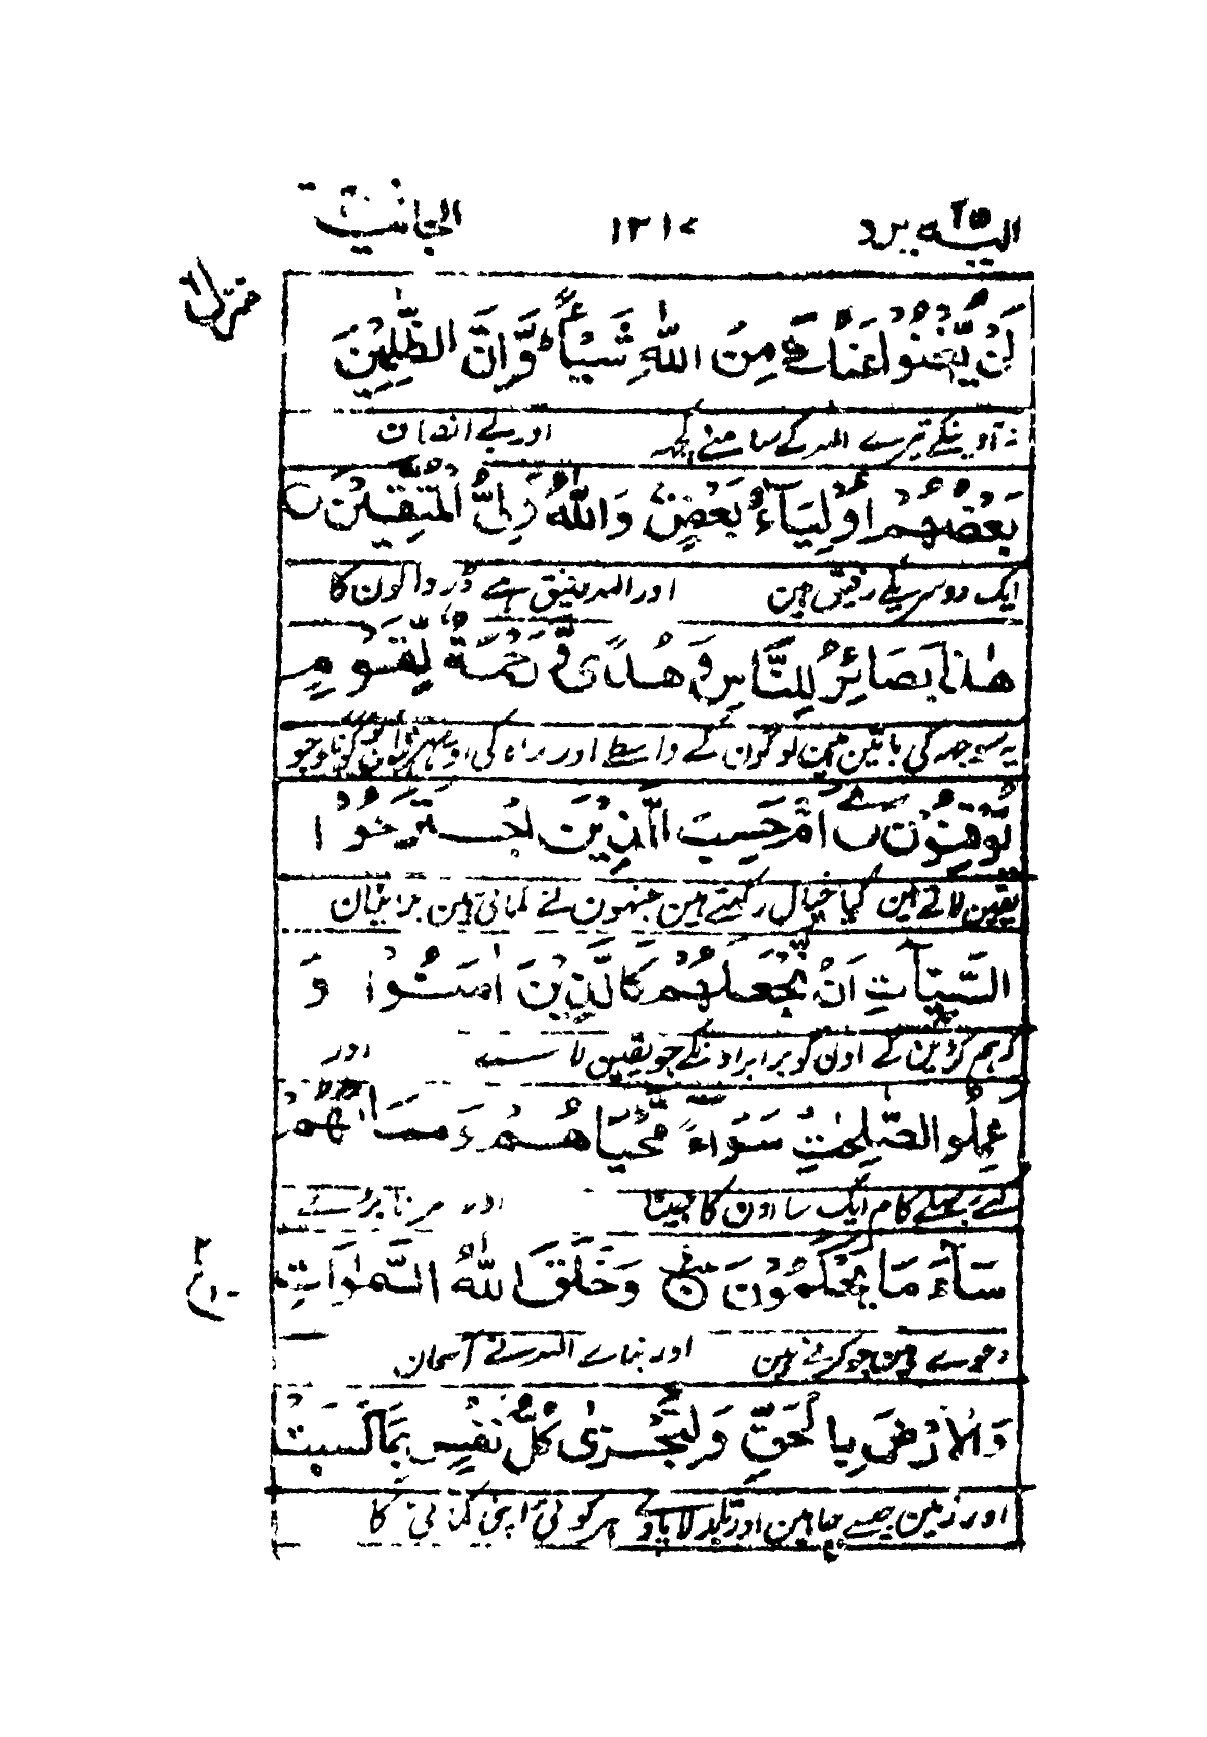 الیہ یرد ٢٥ ١٣١٧ الجاثیة
منزل ٦
لَنْ يُّغْنُوْا عَنْكَ مِنَ اللّٰهِ شَيْـًٔا ؕ وَاِنَّ الظّٰلِمِيْنَ
نہ آوینگے تیرے اللہ کے سامنے کچھ اور بے انصاف
بَعْضُهُمْ اَوْلِيَآءُ بَعْضٍ وَاللّٰهُ وَلِىُّ الْمُتَّقِيْنَ
ایک دوسریکے رفیق ہین اور اللہ رفیق ہے ڈر والون کا
هٰذَا بَصَائِرُ لِلنَّاسِ وَهُدًى وَّرَحْمَةٌ لِّقَوْمٍ
یہ سوجھ کی باتین ہین لوگون کے واسطے اور راہ کی اور مہر اون لوگونکو جو
يُّوْقِنُوْنَ اَمْ حَسِبَ الَّذِيْنَ اجْتَرَحُوْا
یقین لاتے ہین کیا خیال رکھتے ہین جنہون نے کمائی ہین برائیان
السَّيِّاٰتِ اَنْ نَّجْعَلَهُمْ كَالَّذِيْنَ اٰمَنُوْا وَ
کہ ہم کردین گے اون کو برابر اونکے جو یقین لائے اور
عَمِلُوا الصّٰلِحٰتِ سَوَآءً مَّحْيَاهُمْ وَمَمَاتُهُمْ
کئے بھلے کام ایک سا اون کا جینا اور مرنا برے
سَآءَ مَا يَحْكُمُوْنَ وَخَلَقَ اللّٰهُ السَّمٰوَاتِ
دعوے ہین جو کرتے ہین اور بنائے اللہ نے آسمان
وَالْاَرْضَ بِالْحَقِّ وَلِتُجْزٰى كُلُّ نَفْسٍ بِمَا كَسَبَتْ
اور زمین جیسے چاہین اور تا بدلا پاوے ہر کوئی اپنی کمائی کا